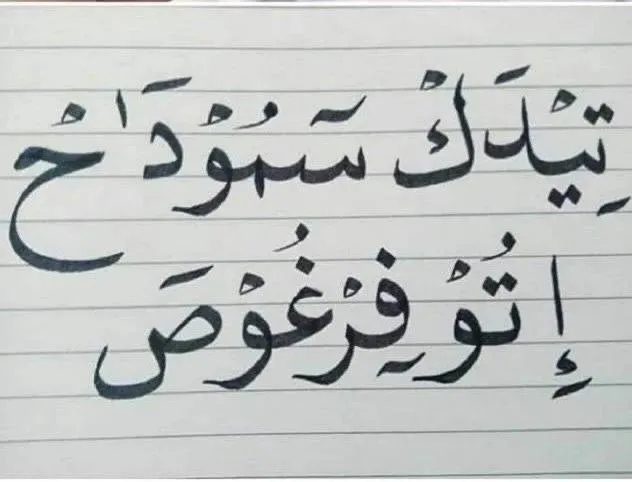 تِيْدَكْ سَمُوْدَاحْ
إِتُوْ فِرْغُوْصَ